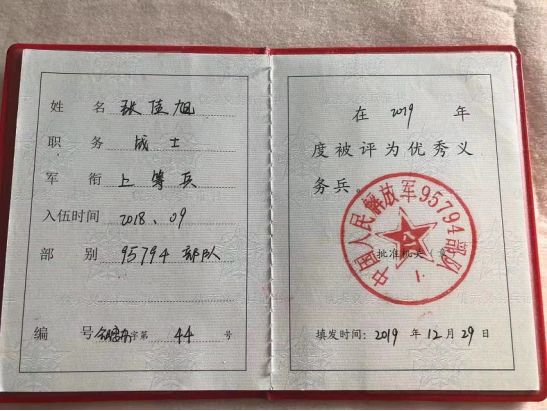 姓名 张佳旭
职务 战士
军衔 上等兵
入伍时间 2018.09
部别 95794部队
编号 字第 44 号
在 2019 年
度被评为优秀义
务兵。
中国人民解放军95794部队
八一
批准机关 章
填发时间：2019 年 12 月 29 日